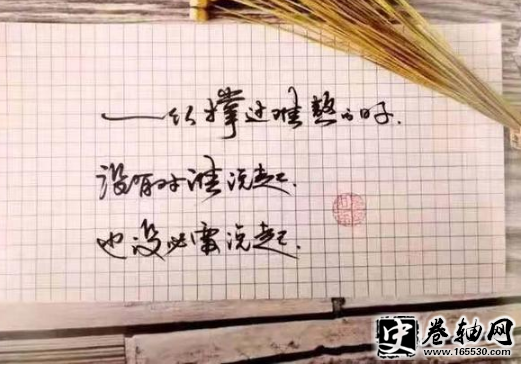 一 撑过难熬的日子.
没有对谁说起.
也没必需说起.
卷轴网
www.165530.com